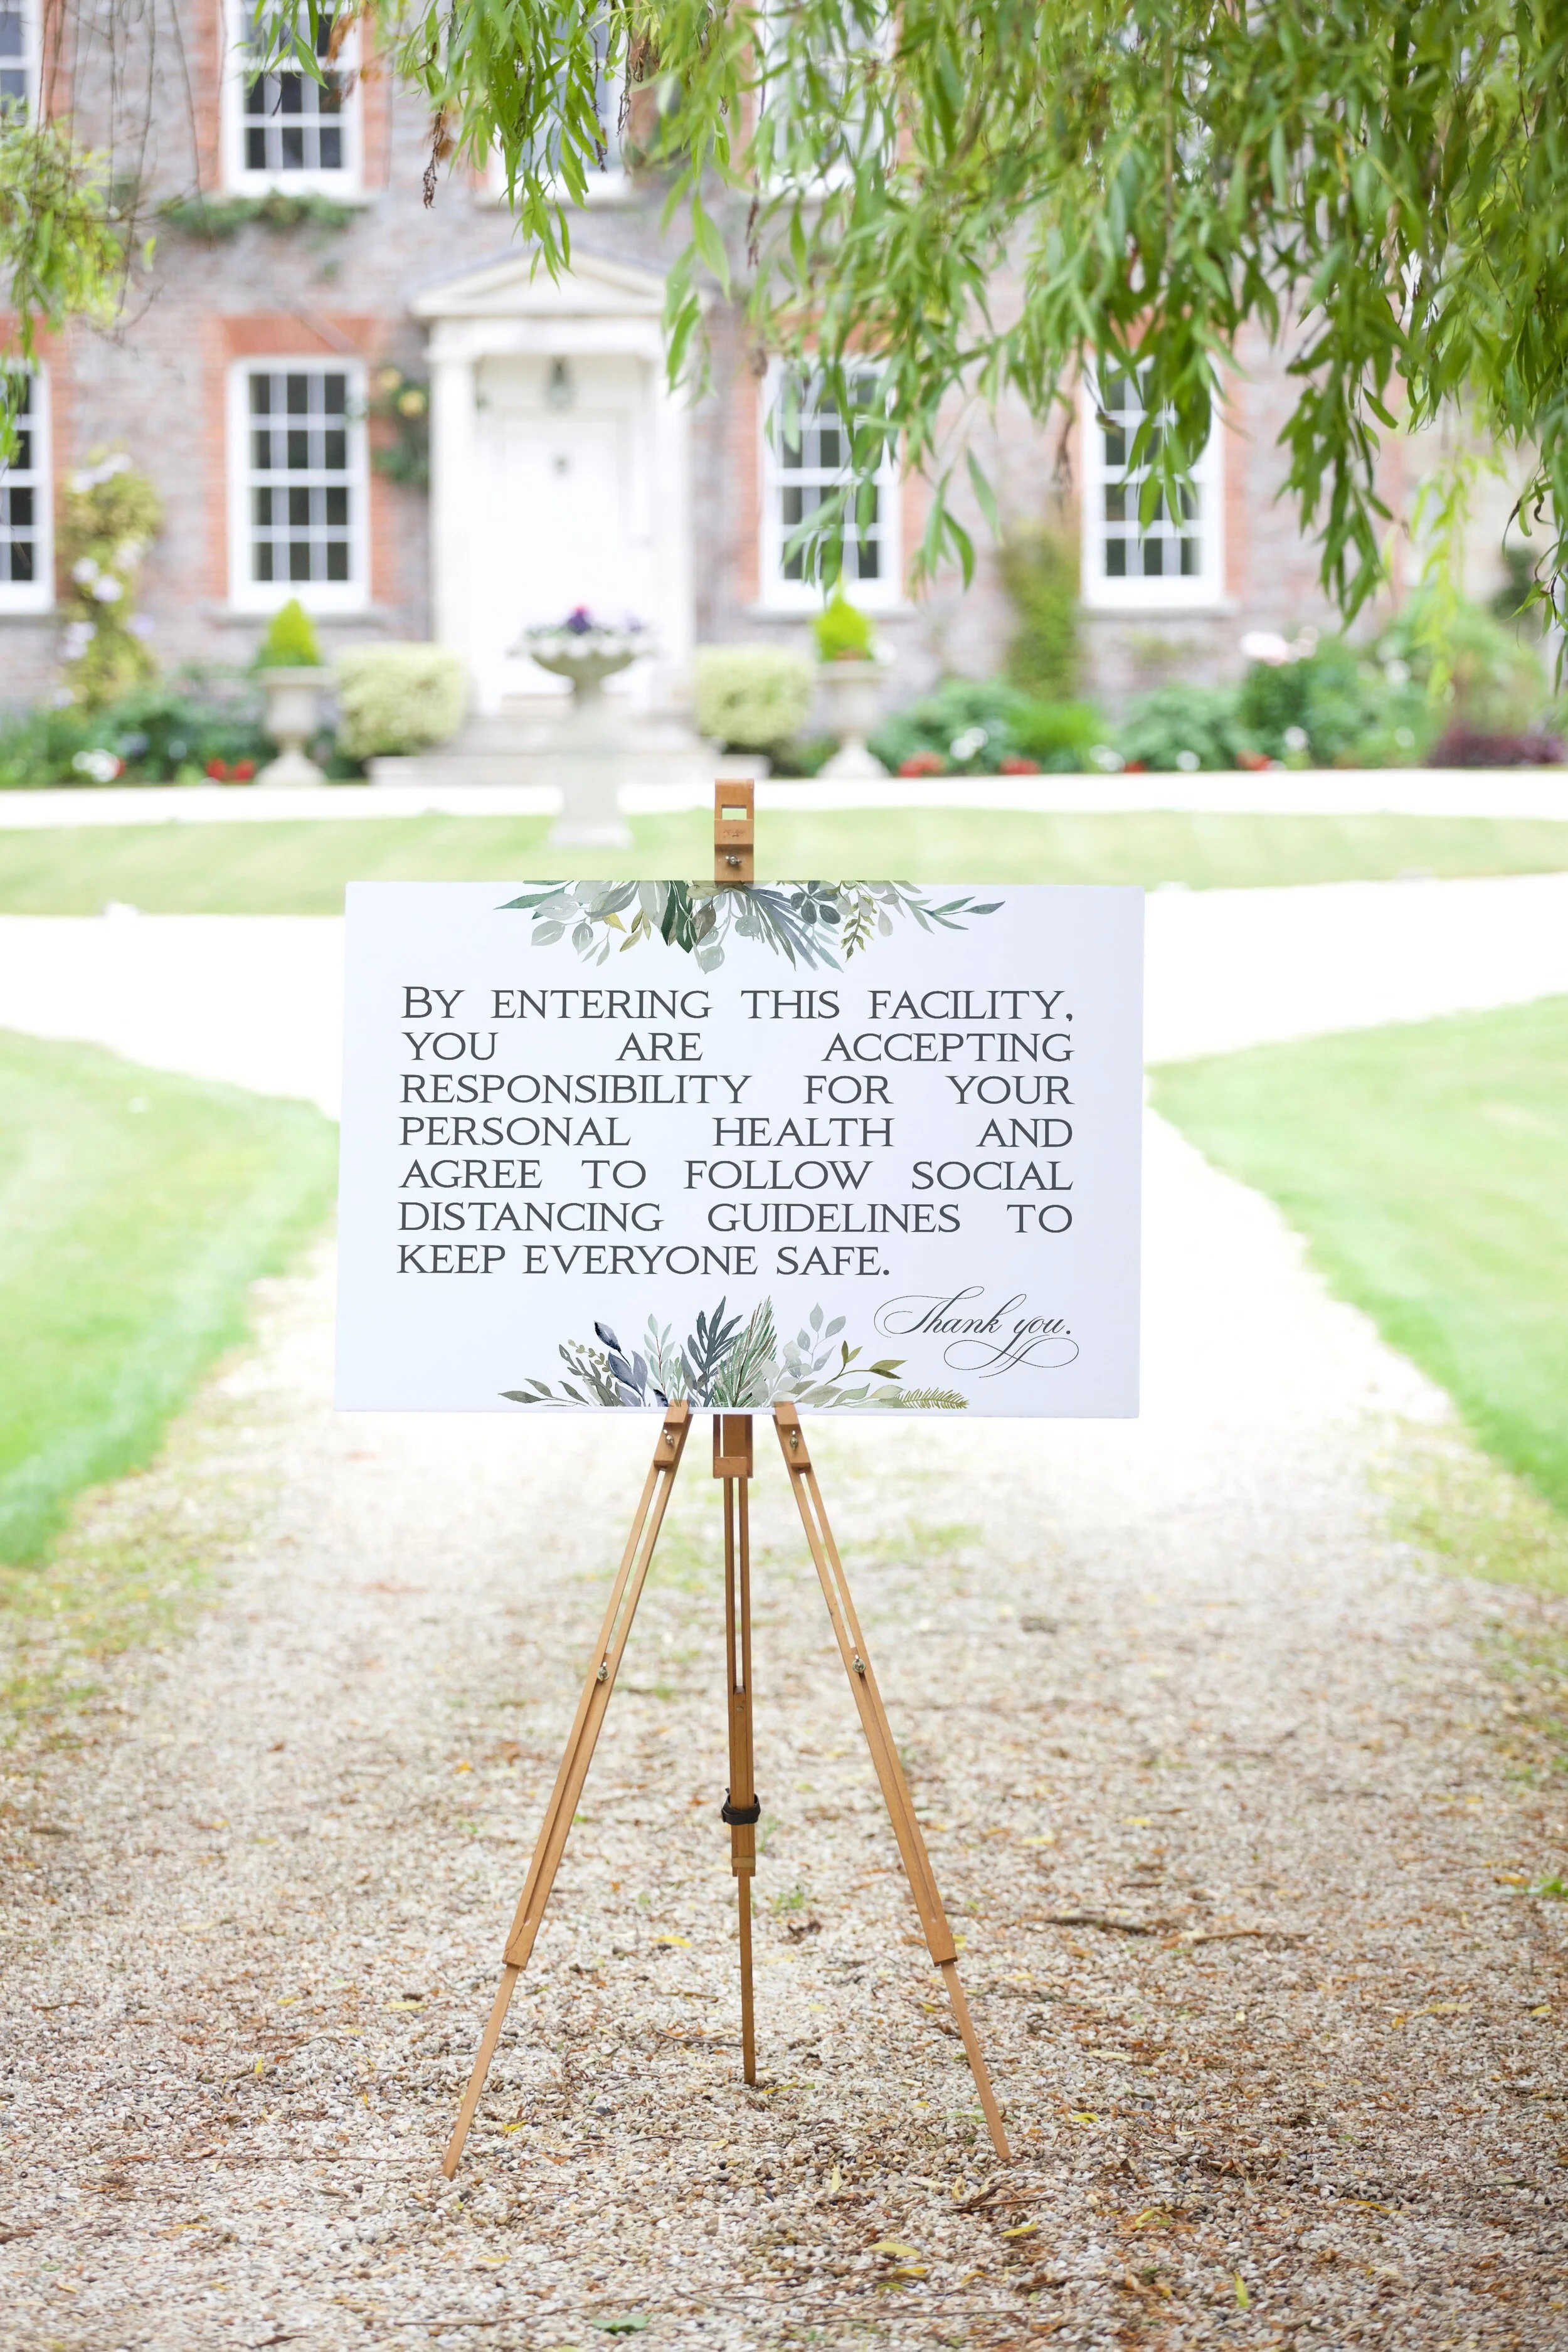 BY ENTERING THIS FACILITY,
YOU ARE ACCEPTING
RESPONSIBILITY FOR YOUR
PERSONAL HEALTH AND
AGREE TO FOLLOW SOCIAL
DISTANCING GUIDELINES TO
KEEP EVERYONE SAFE.
Thank you.